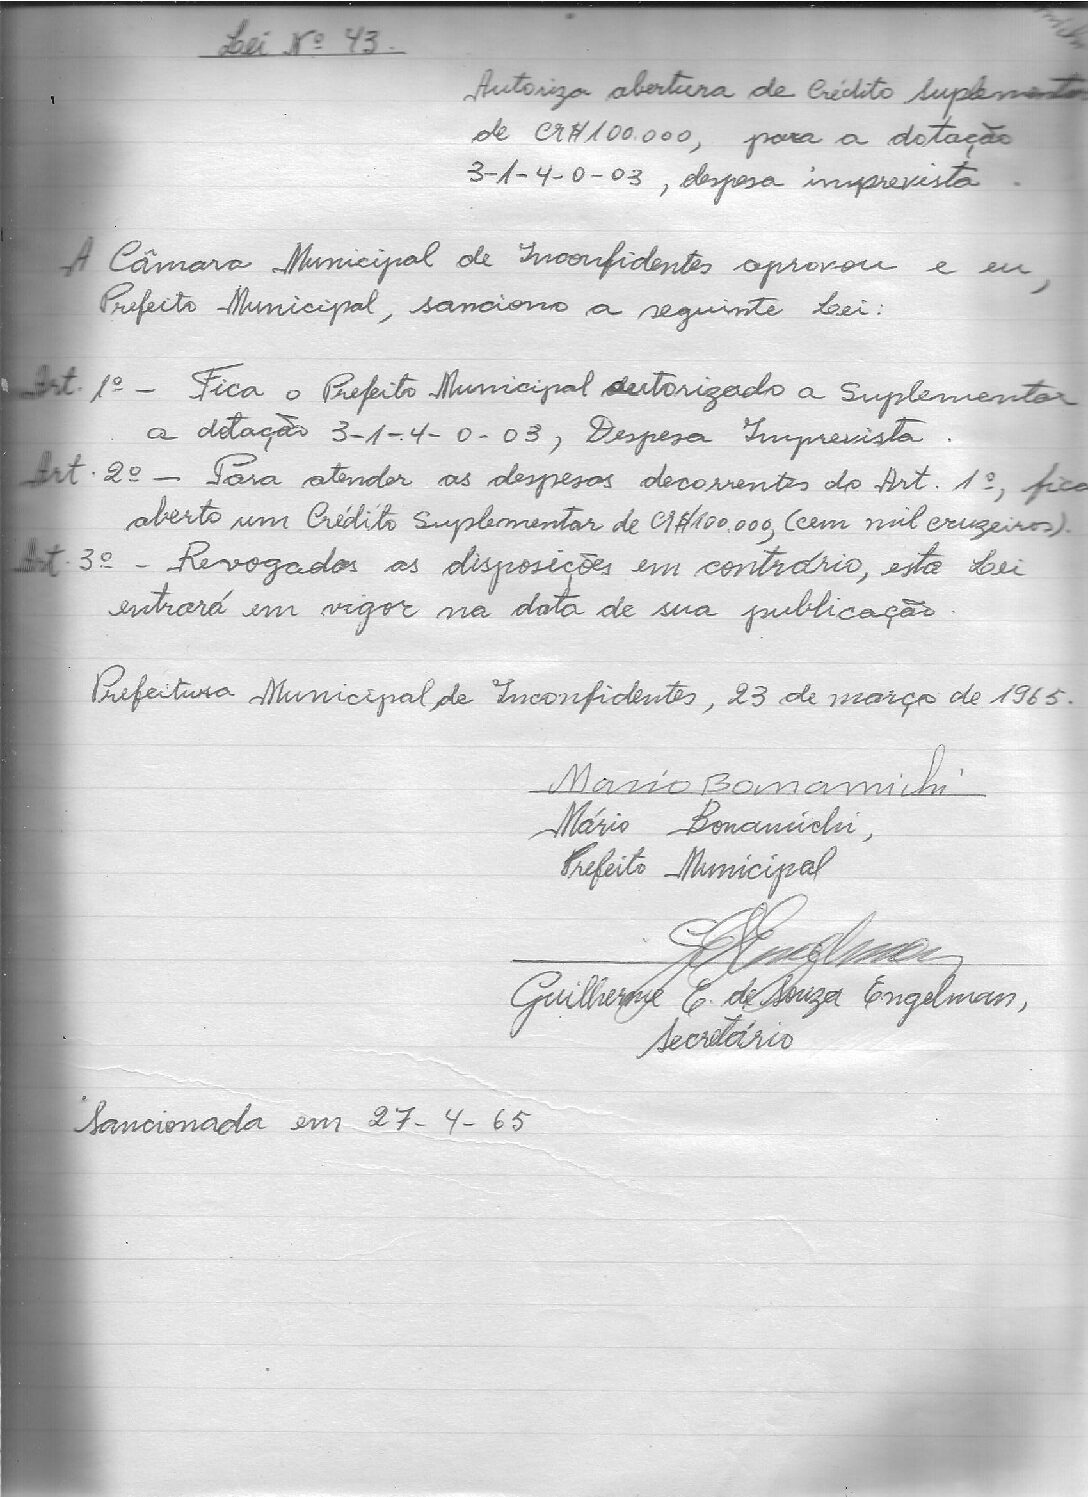 Lei Nº 43.
Autoriza abertura de Crédito Suplementar
de CR$100.000, para a dotação
3-1-4-0-03, despesa imprevista.
A Câmara Municipal de Inconfidentes aprovou e eu,
Prefeito Municipal, sanciono a seguinte Lei:
Art. 1º - Fica o Prefeito Municipal autorizado a Suplementar
a dotação 3-1-4-0-03, Despesa Imprevista.
Art. 2º - Para atender as despesas decorrentes do Art. 1º, fica
aberto um Crédito Suplementar de CR$100.000, (cem mil cruzeiros).
Art. 3º - Revogadas as disposições em contrário, esta Lei
entrará em vigor na data de sua publicação.
Prefeitura Municipal, de Inconfidentes, 23 de março de 1965.
Mario Bonamichi
Mário Bonamichi,
Prefeito Municipal
Engelman
Guilherme E. de Souza Engelman,
Secretário
Sancionada em 27-4-65